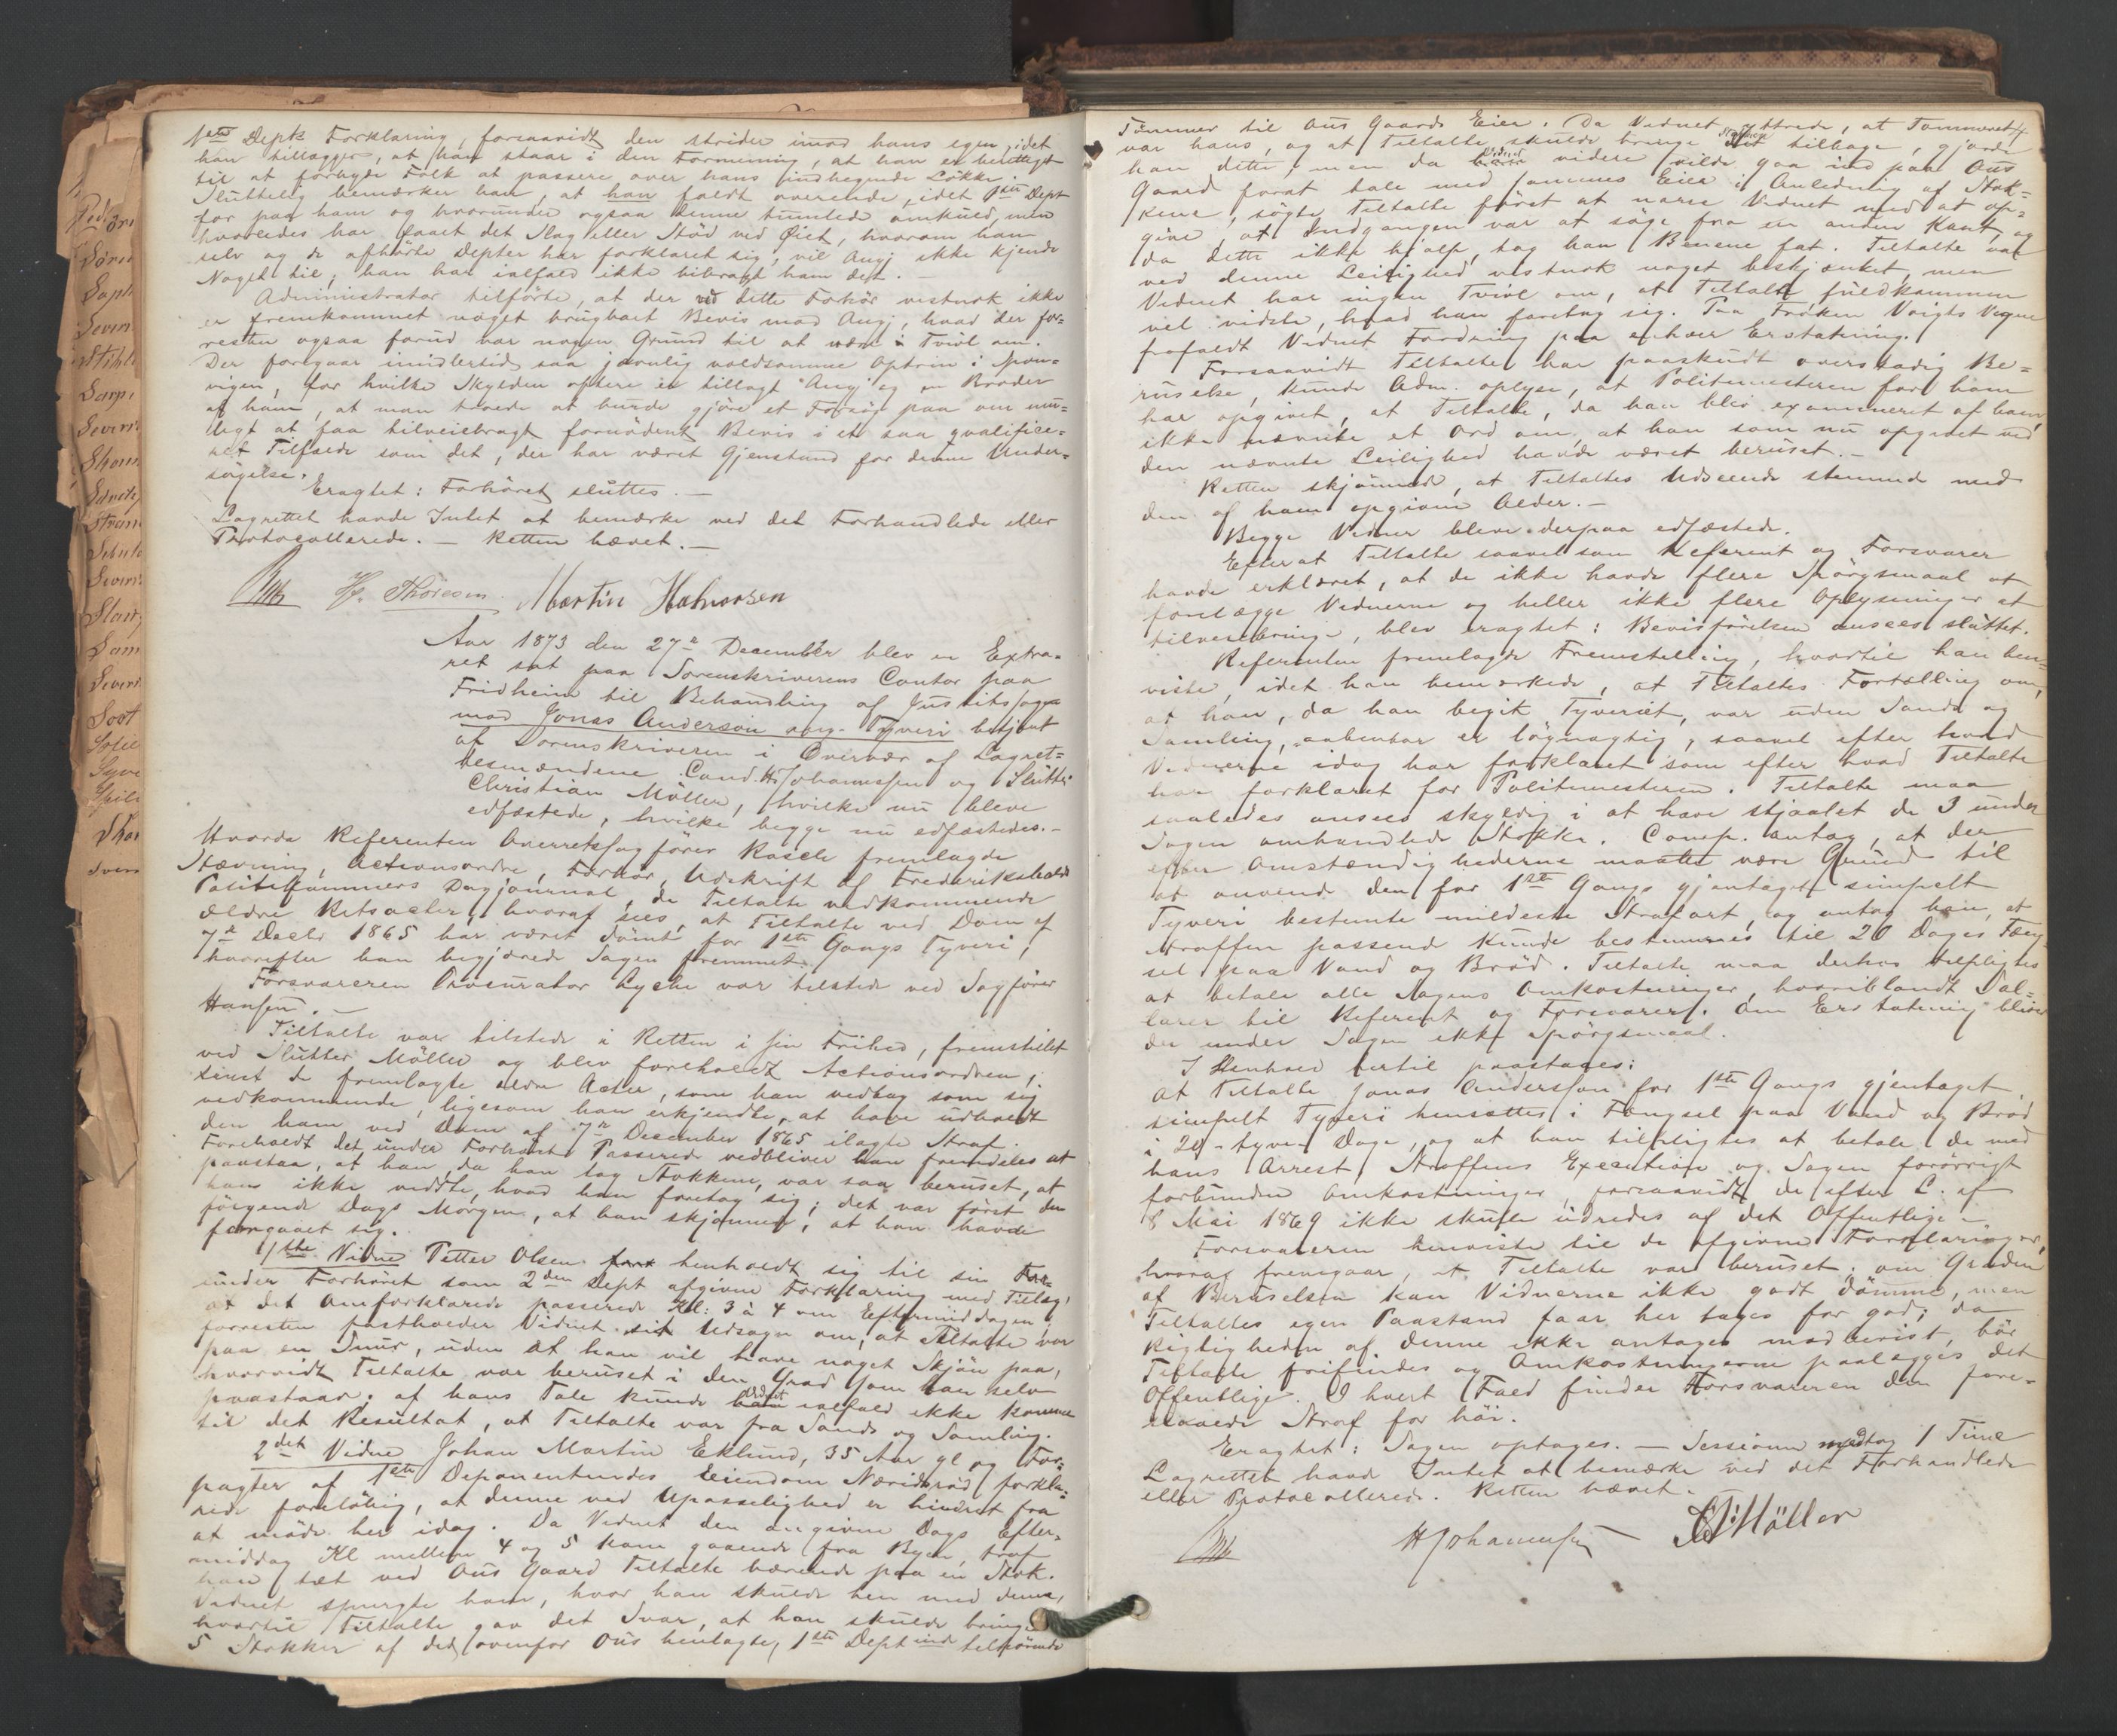 1ste Depts Forklaring, forsaavidt den strider imod hans egen, idet
han tillægger, at han staar i den Formening, at han er berettiget
til at forbyde Folk at passere over hans indhegnede Løkke.
Sluttelig bemærker han, at han faldt overende, idet 1ste Dept
for paa ham og hvorunder ogsaa denne tumlede omkuld, men
hvorledes har faaet det Slag eller Stød ved Øiet, hvorom han
selv og de afhørte Depter har forklaret sig, vil Angj ikke kjende
Noget til; han har ialfald ikke bibragt ham det.
Administrator tilførte, at der ved dette Forhør vistnok ikke
er fremkommet noget brugbart Bevis mod Angj, hvad der for=
resten ogsaa forud var nogen Grund til at være i Tvivl om.
Der foregaar imidlertid saa jævnlig voldsomme Optrin i
vigen, for hvilke Skylden oftere er tillagt Angj og en Broder
af ham, at man troede at burde gjøre et Forsøg paa om mu=
ligt at faa tilveiebragt fornødent Bevis i et saa qvalifice=
ret Tilfælde som det, der har været Gjenstand for denne Under=
søgelse.
Eragtet: Forhøret sluttes. —
Lagrettet havde Intet at bemærke ved det Forhandlede eller
Protocollerede. — Retten hævet. —
H. Thoresen. Martin Halvorsen
Aar 1873 den 27de December blev en Extra=
ret sat paa Sorenskriverens Contor paa
Fridheim til Behandling af Justitssagen
mod Jonas Anderson ang. Tyveri betjent
af Sorenskriveren i Overvær af Lagret=
tesmændene Cand. H. Johannessen og Slutter
Christian Möller, hvilke nu bleve
edfæstede, hvilke begge nu edfæstedes. —
Hvorda Referenten Overretssagfører Rasch fremlagde
Stævning, Actionsordre, Forhør, Udskrift af Frederikshalds
Politikammers Dagjournal, de Tiltalte vedkommende
ældre Retsacter, hvoraf sees, at Tiltalte ved Dom af
7de Decbr 1865 har været dømt for 1ste Gangs Tyveri,
hvorefter han begjærede Sagen fremmet.
Forsvareren Procurator Lyche var tilstede ved Sagfører
Hansen. —
Tiltalte var tilstede i Retten i sin Frihed, fremstillet
ved Slutter Möller og blev foreholdt Actionsordren,
de fremlagte ældre Acter, som han vedtog som sig
vedkommende, ligesom han erkjendte, at have udholdt
den ham ved Dom af 7de December 1865 ilagte Straf.
Foreholdt det under Forhøret Passerede vedbliver han fremdeles at
paastaa, at han, da han tog Stokkene, var saa beruset, at
han ikke vidste, hvad han foretog sig; det var først den
følgende Dags Morgen, at han skjønner, at han havde
forgaaet sig.
1ste Vidne Petter Olsen henholdt sig til sin
under Forhøret som 2den Dept afgivne Forklaring med Tillæg,
at det Omforklarede passerede Kl: 3 à 4 om Eftermiddagen;
forresten fastholder Vidnet sit Udsagn om, at Tiltalte var
paa en Snur, uden at han vil have noget Skjøn paa,
hvorvidt Tiltalte var beruset i den Grad som han selv
paastaar; af hans Tale kunde Vidnet ialfald ikke komme
til det Resultat, at Tiltalte var fra Sands og Samling.
2det Vidne Johan Martin Eklund, 35 Aar gl og For=
pagter af 1ste Deponentindes Eiendom forkla=
rede foreløbig, at denne ved Upasselighed er hindret fra
at møde her idag. Da Vidnet den angivne Dags Efter=
middag Kl mellem 4 og 5 kom gaaende fra Byen, traf
han tæt ved Ous Gaard Tiltalte bærende paa en Stok.
Vidnet spurgte ham, hvor han skulde hen med denne,
hvortil Tiltalte gav det Svar, at han skulde bringe
5 Stokker af det ovenfor Ous henlagte, 1ste Deptinde tilhørende
Tømmer til Ous Gaards Eier. Da Vidnet yttrede, at Tømmeret
var hans, og at Tiltalte skulde bringe Stokken tilbage, gjorde
han dette, men da Vidnet videre vilde gaa ind paa Ous
Gaard forat tale med sammes Eier i Anledning af Stok=
kene, søgte Tiltalte først at narre Vidnet med at op=
give, at Indgangen var at søge fra en anden Kant, og
da dette ikke hjalp, tog han Benene fat. Tiltalte var
ved denne Leilighed vistnok noget beskjænket, men
Vidnet har ingen Tvivl om, at Tiltalte fuldkommen
vel vidste, hvad han foretog sig. Paa Frøken Voigts Vegne
frafaldt Vidnet Fordring paa enhver Erstatning.
Forsaavidt Tiltalte har paaskudt overstadig Be=
ruselse, kunde Adm. oplyse, at Politimesteren for ham
har opgivet, at Tiltalte, da han blev examineret af ham,
ikke nævnte et Ord om, at han som nu opgivet ved
den nævnte Leilighed havde været beruset. —
Retten skjønnede, at Tiltaltes Udseende stemmede med
den af ham opgivne Alder. —
Begge Vidner bleve derpaa edfæstede.
Efterat Tiltalte saavelsom Referent og Forsvarer
havde erklæret, at de ikke havde flere Spørgsmaal at
forelægge Vidnerne og heller ikke flere Oplysninger at
tilveiebringe, blev eragtet: Bevisførelsen ansees sluttet.
Referenten fremlagde Fremstilling, hvortil han hen=
viste, idet han bemærkede, at Tiltaltes Fortælling om,
at han, da han begik Tyveriet, var uden Sands og
Samling, aabenbar er løgnagtig, saavel efter hvad
Vidnerne idag har forklaret som efter hvad Tiltalte
har forklaret for Politimesteren. Tiltalte maa
saaledes ansees skyldig i at have stjaalet de 3 under
Sagen omhandlede Stokke. Comp. antog, at der
efter Omstændighederne maatte være Grund til
at anvende den for 1ste Gangs gjentaget simpelt
Tyveri bestemte mildeste Strafart, og antog han, at
Straffen passende kunde bestemmes til 20 Dages Fæng=
sel paa Vand og Brød. Tiltalte maa derhos tilpligtes
at betale alle Sagens Omkostninger, hvoriblandt Sal=
larer til Referent og Forsvarer. Om Erstatning bliver
der under Sagen ikke Spørgsmaal.
I Henhold hertil paastaaes:
At Tiltalte Jonas Andersson for 1ste Gangs gjentaget
simpelt Tyveri hensættes i Fængsel paa Vand og Brød
i 20 - tyve - Dage, og at han tilpligtes at betale de med
hans Arrest, Straffens Execution og Sagen forøvrigt
forbundne Omkostninger, forsaavidt de efter L. af
8 Mai 1869 ikke skulle udredes af det Offentlige —
Forsvareren henviste til de afgivne Forklaringer,
hvoraf fremgaar, at Tiltalte var beruset; om Graden
af Beruselsen kan Vidnerne ikke godt dømme, men
Tiltaltes egen Paastand faar her tages for god; da
Rigtigheden af denne ikke antages modbevist, bør
Tiltalte frifindes og Omkostningerne paalægges det
Offentlige. I hvert Fald finder Forsvareren den fore=
slaaede Straf for høi.
Eragtet: Sagen optages. — Sessionen medtog 1 Time
Lagrettet havde Intet at bemærke ved det Forhandlede
eller Protocollerede. Retten hævet.
HJohannessen — Möller